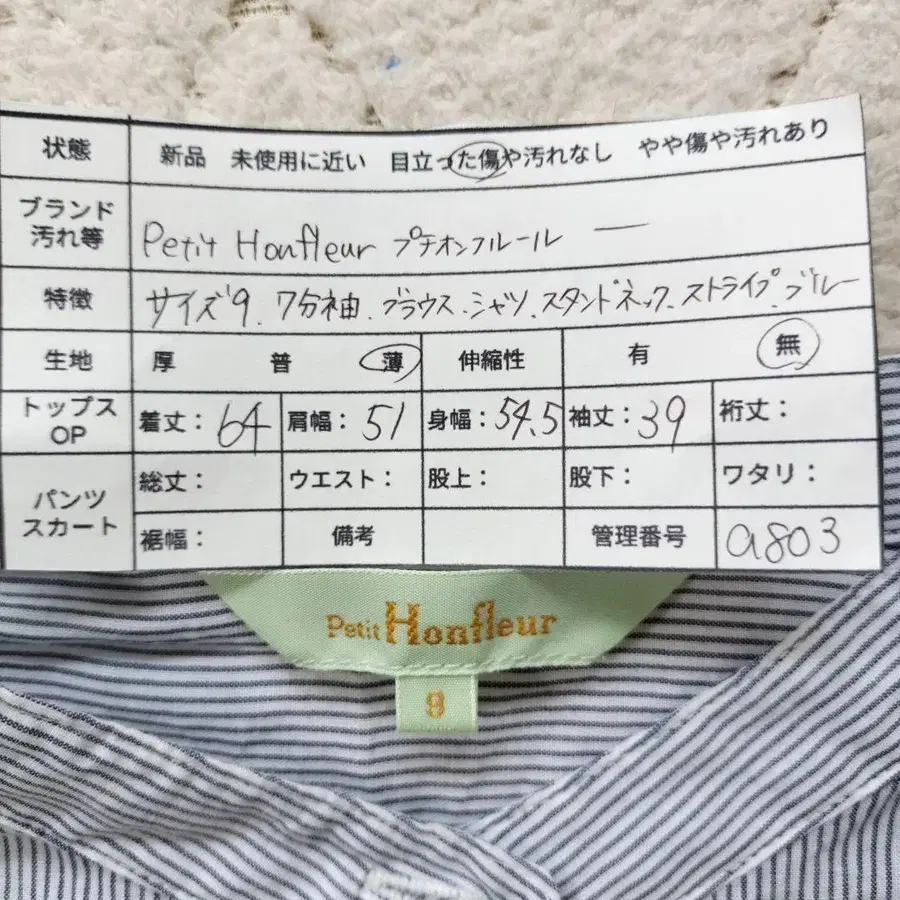 状態 新品 未使用に近い 目立った傷や汚れなし やや傷や汚れあり
ブランド
汚れ等 Petit Honfleur プチオンフルール ー
特徴 サイズ9、7分袖、ブラウス、シャツ、スタンドネック、ストライプ、ブルー
生地 厚 普 薄 伸縮性 有 無
トップス
OP 着丈：64 肩幅：51 身幅：54.5 袖丈：39 裄丈：
パンツ
スカート 総丈： ウエスト： 股上： 股下： ワタリ：
裾幅： 備考 管理番号 a803
Petit Honfleur
9